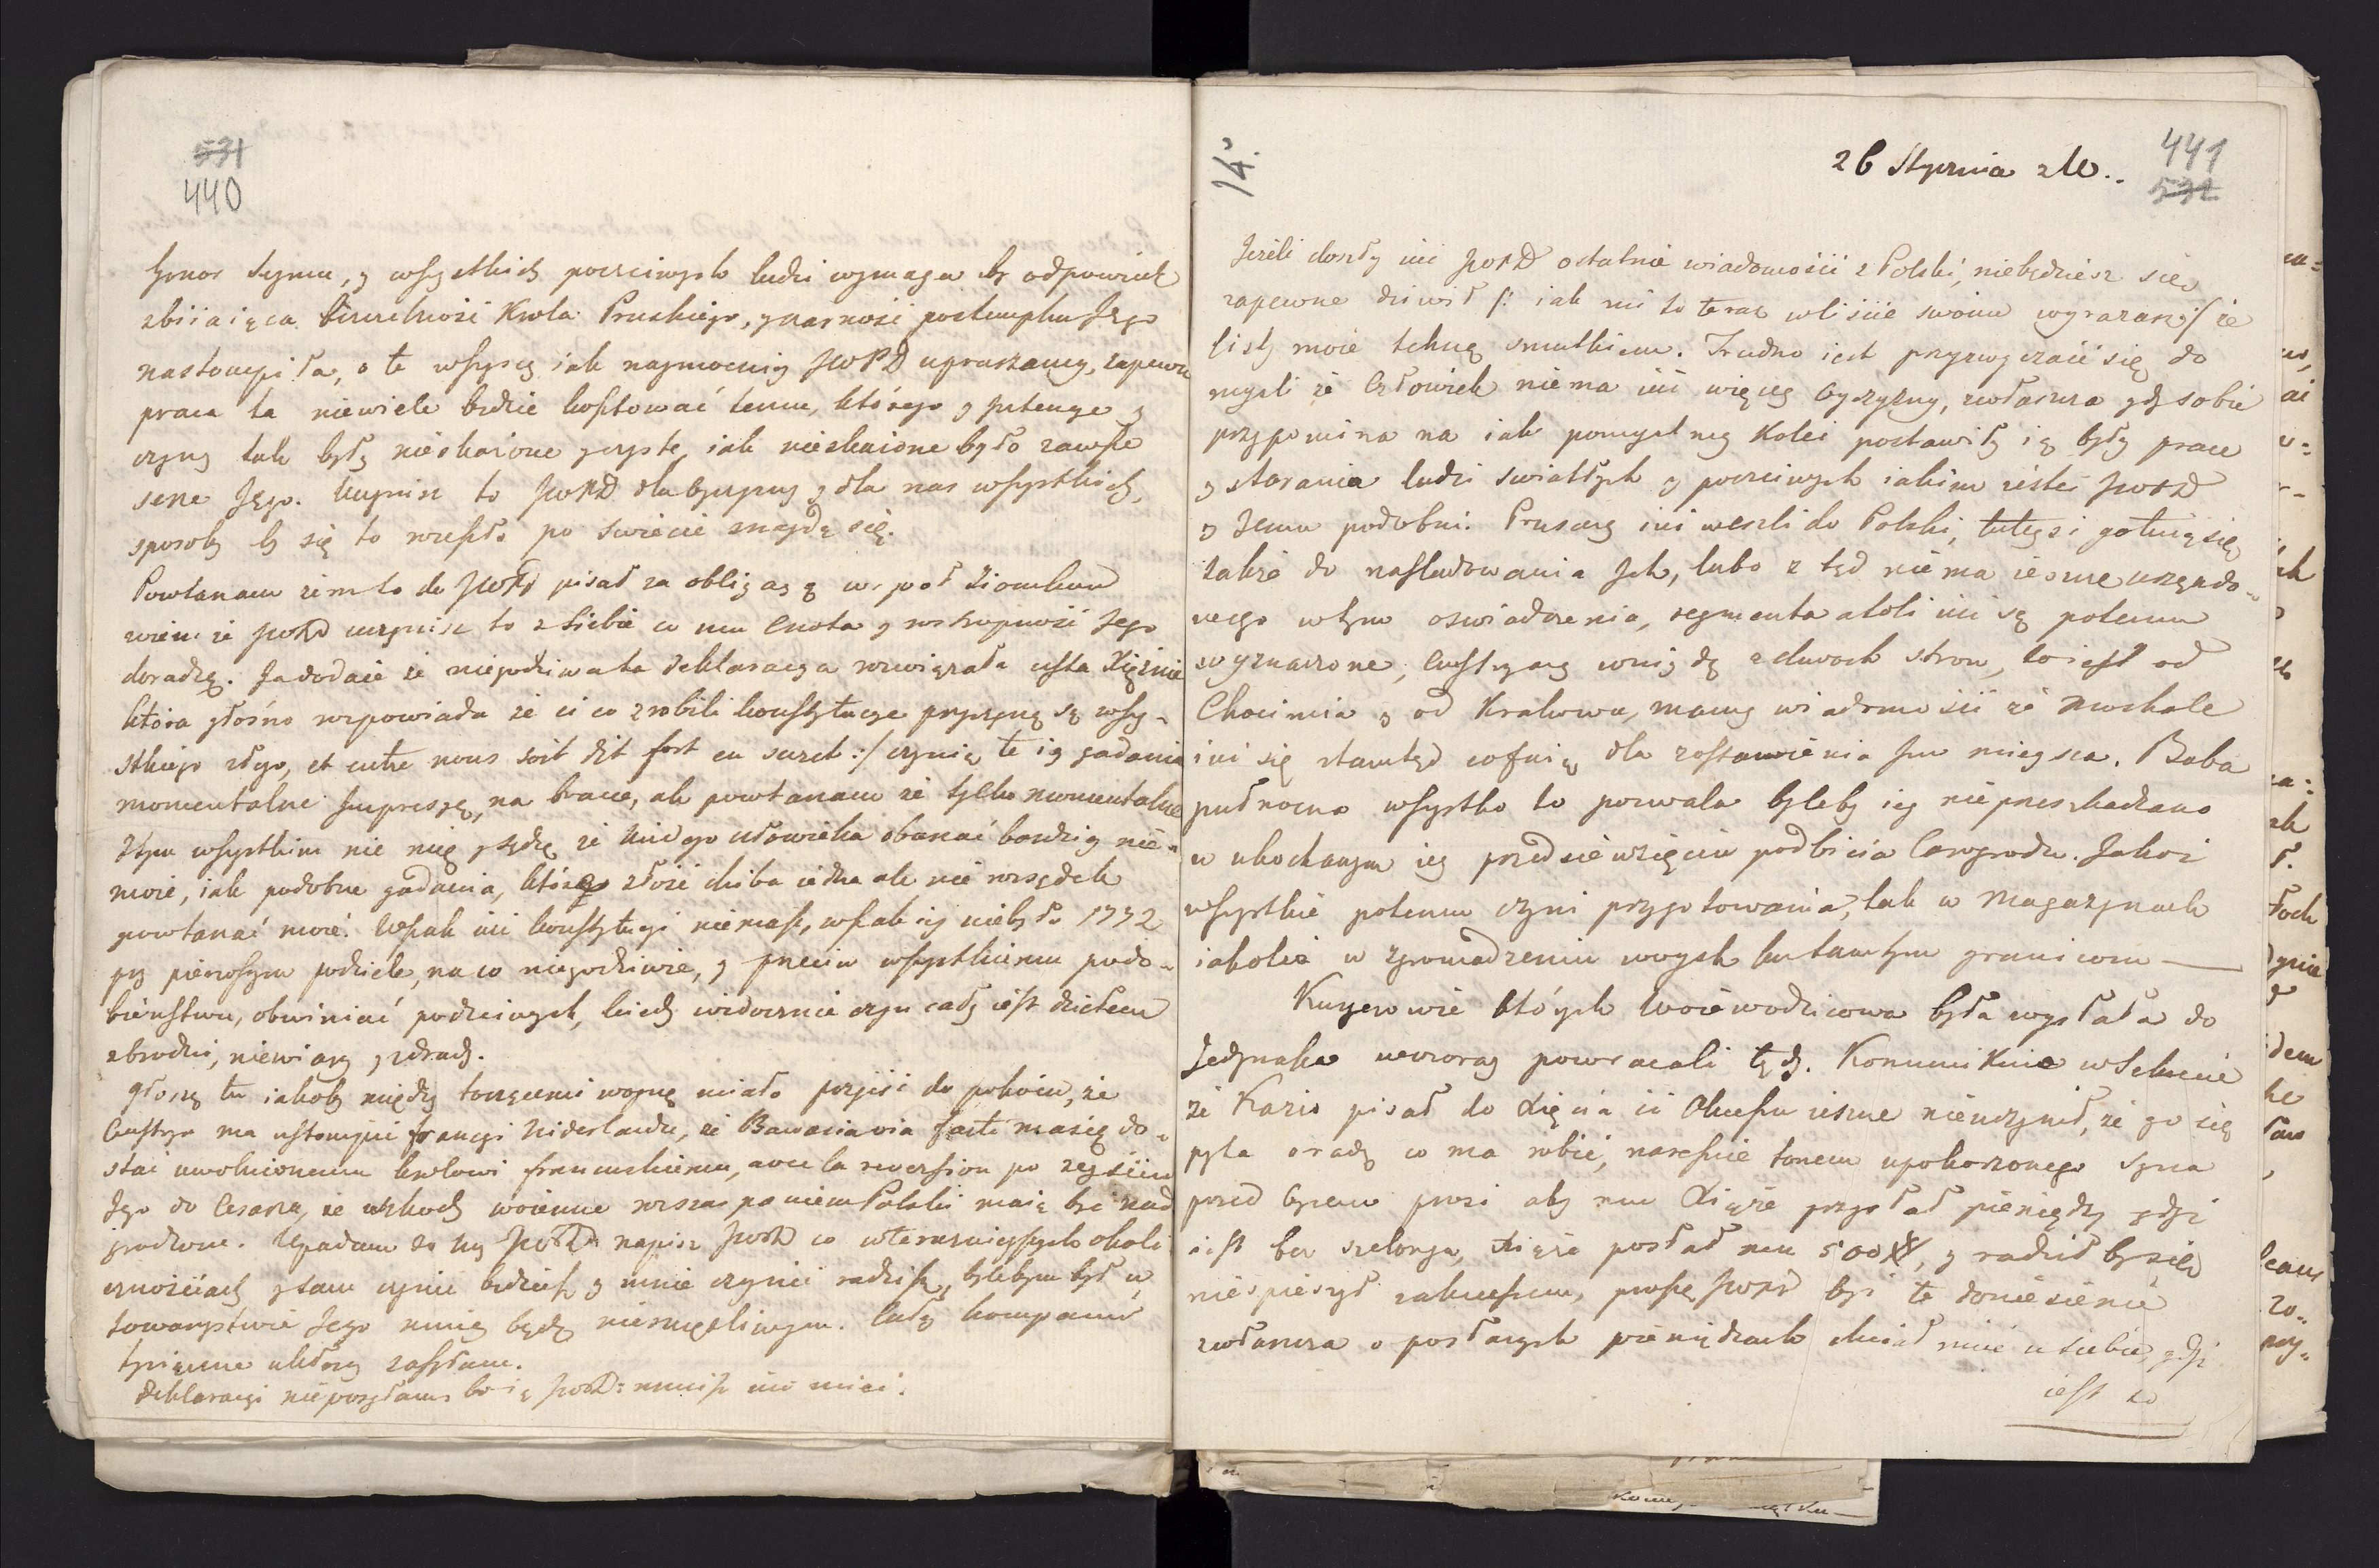 531
440
honor Seymu, y wszystkich poczciwych ludzi wymaga by odpowiedź
zbiiaiąca bezczelność Krola Pruskiego, y czarność postempku Jego
nastąmpiła, o te wszyscy iak naymocniey JWPD upraszamy, zapewne
praca ta niewiele będzie kosztować temu, którego y intencye y
czyny tak były nieskażone y czyste, iak nieskażone było zawsze
serce Jego. Uczynisz to JWPD dla Oyczyzny y dla nas wszystkich,
sposoby by się to rozeszło po świecie znaydą się.
Powtarzam żem to do JWPD pisał za obligacyą w. pod Ziomkow
wiem że JWPD uczynisz to z siebie co mu Cnota y roztropność Jego
doradzą. Ja dodaię że niegodziwa ta deklaracya rozwiązała usta Xiężnie
która głośno rozpowiada że ci co zrobili konstytucye przyczyną są wszy-
stkiego złego, et entre nous soit dit fort en secret :/ czynią te iey gadania
momentalne Impressye, na bracie, ale powtarzam że tylko momentalne
Z tym wszystkim nie mię y sądzę że nikogo człowieka oburzać bardziey nie-
może, iak podobne gadania, które złość chiba iedna ale nie rozsądek
powtarzać może. Wszak iuż konstytucyi niemasz, wszak iey nie było 1772
przy pierwszym podziele, na co niegodziwie, y przeciw wszystkiemu podo-
bieństwu, obwiniać poczciwych, kiedy widocznie czyn cały iest dziełem
zbrodni, niewiary y zdrady.
Głoszą tu iakoby między toczącemi woynę miało przyiść do pokoiu, że
Austrya ma ustompić francyi Niderlandu, że Bawaria via facti ma się do-
stać uwolnionemu królowi francuskiemu, avec la reversion po zeyściu
Jego do Cesarza, że szkody woienne rozszarpaniem Polski maią być nad
grodzone. Upadam do nóg JWPD napisz JWPD co w teraznieyszych okoli
cznościach y sam czynić będziesz y mnie czynić radzisz, bylebym był w
towarzystwie Jego mniey będę nieszczęśliwym. Całey kompanii
tysiączne ukłony zasyłam.
Deklaracyi nie posyłam bo ią JWPD: musisz iuż mieć.
14.
26 Stycznia z W..
441
532
Jeżeli doszły iuż JWPD ostatnie wiadomości z Polski, niebędziesz się
zapewne dziwił /: iak mi to teraz w liście swoim wyrażasz :/ że
listy moie tchną smutkiem. Trudno iest przyzwyczaić się do
myśli że Człowiek nie ma iuż więcey Oyczyzny, zwłaszcza gdy sobie
przypomina na iak pomyślney kolei postawiły ią były prace
y starania ludzi światłych y poczciwych iakim iesteś JWPD
y Jemu podobni. Prusacy iuż weszli do Polski, tuteysi gotuią się
także do nasladowania Ich, lubo z tąd nie ma ieszcze urzędo-
wego w tym oświadczenia, regimenta atoli iuż są potemu
wyznaczone, Austryacy wniydą z dwoch stron, to iest od
Chocimia y od Krakowa, mamy wiadomości że Moskale
iuż się stamtąd cofnią dla zostawienia Im mieysca. Baba
pułnocna wszystko to pozwala byleby iey nieprzeszkadzano
w ukochanym iey przedsięwzięciu podbicia Carogrodu. Jakoż
wszystkie potemu czyni przygotowania, tak w Magazynach
iakoteż w zgromadzeniu woysk ku tamtym granicom —
Kuryerowie których Woiewodzicowa była wysłała do
Jedynaka wczoray powracali tędy. Kommunikuie w Sekrecie
że Kazio pisał do Xięcia iż Akcessu ieszcze nieuczynił, że go się
pyta o radę co ma robić, nareszcie tonem upokorzonego Syna
przed Oycem prosi aby mu Xiąże przysłał pieniędzy gdyż
iest bez szeloga, Xiąże posłał mu 500#, y radził by się
niespieszył z akcessem, proszę JWPD byś te doniesienie
zwłaszcza o posłanych pieniądzach chciał mieć u siebie, gdyż
iest to